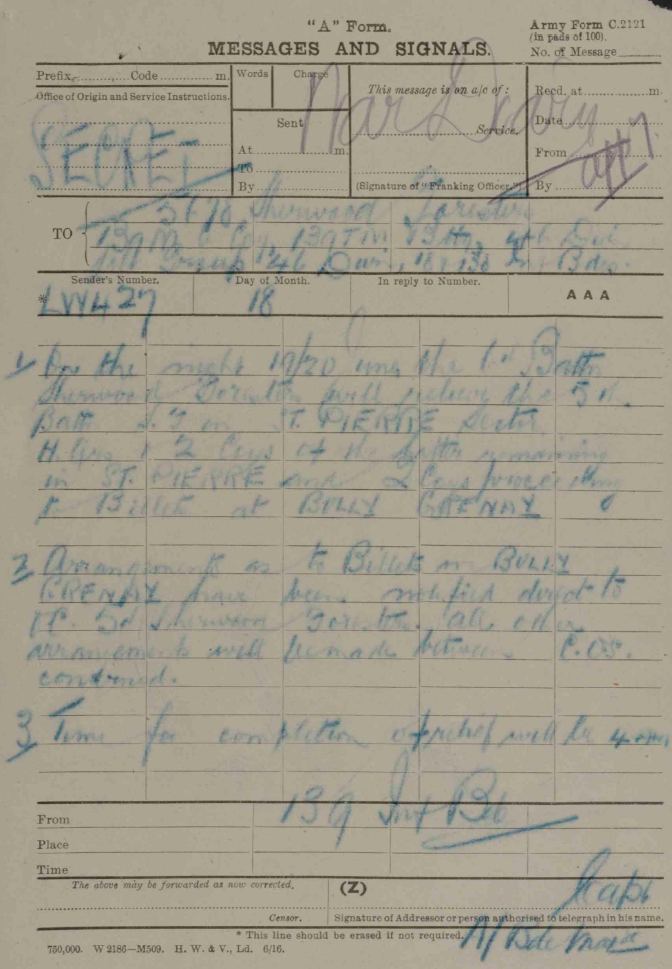 "A" Form.
MESSAGES AND SIGNALS.
Army Form C.2121
(in pads of 100).
No. of Message
Prefix Code m.
Office of Origin and Service Instructions.
SECRET
Words Charge
Sent
At m.
To
By
This message is on a/c of :
Service.
(Signature of "Franking Officer.")
Recd. at m.
Date
From
By
War Diary
App 7
TO
Sherwood Foresters
139 M G Coy, 139 TM Bty, 46 Div
Group 46 Divn, 137 138 Inf Bdes.
Sender's Number.
Day of Month.
In reply to Number.
A A A
* LW427
18
1 On the night 19/20 inst the Battn
Sherwood Foresters will relieve the 5th
Batt S.F in ST. PIERRE Sector
H.Qrs & 2 Coys of the latter remaining
in ST. PIERRE and 2 Coys proceeding
to Billets at BULLY GRENAY
2 Arrangements as to Billets in BULLY
GRENAY have been notified direct to
Sherwood Foresters. All other
arrangements will be made between C.Os.
concerned.
3 Time for completion of relief will be 4 am
From
Place
Time
139 Inf Bde
The above may be forwarded as now corrected.
(Z)
Capt
Censor.
Signature of Addressor or person authorised to telegraph in his name.
* This line should be erased if not required.
A/ Bde Major
750,000. W 2186—M509. H. W. & V., Ld. 6/16.